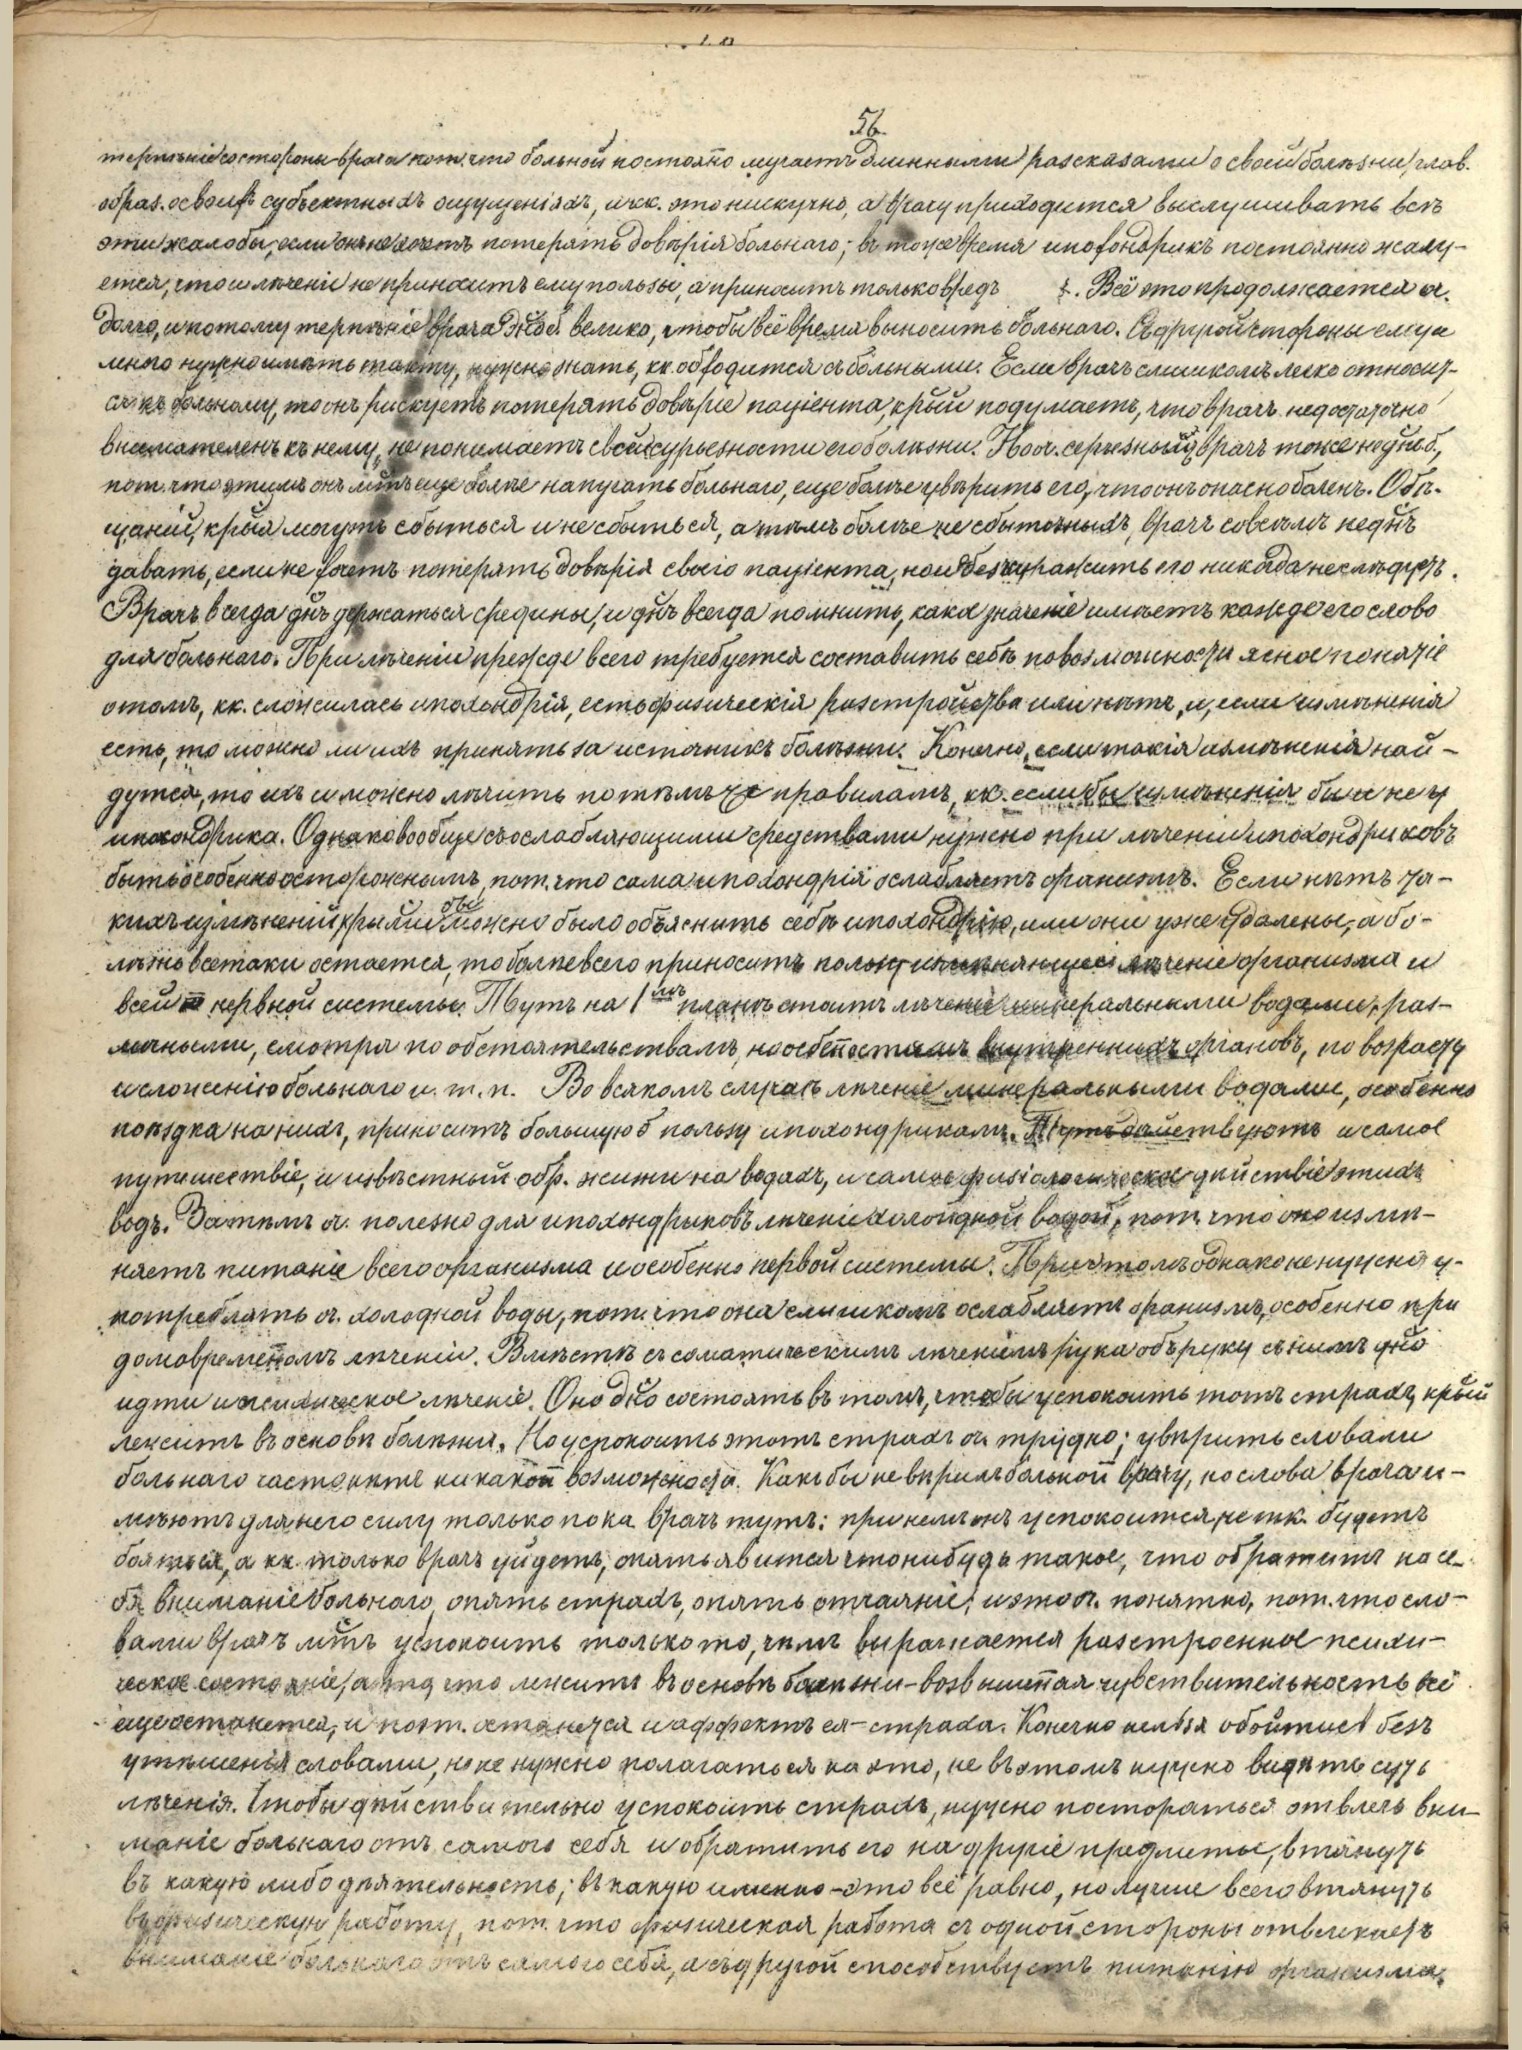 56.
терпѣніе со стороны врача пот. что больной постояно мучаетъ длинными разсказами о своей болѣзни, глав.
образ. о своихъ субъектныхъ ощущеніяхъ, и кк. это ни скучно, а врачу приходится выслушивать всѣ
эти жалобы, если онъ не хочетъ потерять довѣрія больнаго; въ тоже время ипохондрикъ постоянно жалу-
ется, что леченіе не приноситъ ему пользы, а приноситъ только вредъ. Всё это продолжается оч.
долго, и потому терпѣніе врача дно б. велико, чтобы всё время выносить больнаго. Съ другой стороны ему и
много нужно имѣть такту, нужно знать, кк. обходится съ больными. Если врачъ слишкомъ легко относит-
ся къ больному, то онъ рискуетъ потерять довѣріе паціента, крый подумаетъ, что врачъ недостаточно
внимателенъ къ нему, не понимаетъ всей сурьезности его болѣзни. Но оч. серьезный врачъ тоже не днъ б.,
пот. что этимъ онъ мтъ еще болѣе напугать больнаго, еще болѣе увѣрить его, что онъ опасно боленъ. Обѣ-
щаній, крыя могутъ сбыться и не сбыться, а тѣмъ болѣе не сбыточныхъ, врачъ совсѣмъ не днъ
давать, если не хочетъ потерять довѣрія своего паціента, но и обезкуражить его никогда не слѣдуетъ.
Врачъ всегда днъ держаться средины, и днъ всегда помнить, какое значеніе имѣетъ каждое его слово
для больнаго. При леченіи прежде всего требуется составить себѣ по возможности ясное понятіе
о томъ, кк. сложилась ипохондрія, есть физическія разстройства или нѣтъ, и, если измѣненія
есть, то можно ли ихъ принять за источникъ болѣзни. Конечно, если такія измѣненія най-
дутся, то ихъ и можно лѣчить по тѣмъ же правиламъ, кк. если бы измѣненія были не у
ипохондрика. Однако вообще съ ослабляющими средствами нужно при лѣченіи ипохондриковъ
быть особенно осторожнымъ, пот. что сама ипохондрія ослабляетъ организмъ. Если нѣтъ та-
кихъ измѣненій, крыми бы можно было объяснить себѣ ипохондрію, или они уже удалены, а бо-
лѣзнь всетаки остается, то болѣе всего приноситъ пользу измѣняющее лѣченіе организма и
всей нервной системы. Тутъ на 1мъ планѣ стоитъ лѣченіе минеральными водами, раз-
личными, смотря по обстоятельствамъ, по особеностямъ внутреннихъ органовъ, по возрасту
и сложенію больнаго и. т. п. Во всякомъ случаѣ лѣченіе минеральными водами, особенно
поѣздка на нихъ, приноситъ большую пользу ипохондрикамъ. Тутъ дѣйствуютъ и самое
путешествіе, и извѣстный обр. жизни на водахъ, и самое физіологическое дѣйствіе этихъ
водъ. Затѣмъ оч. полезно для ипохондриковъ лѣченіе холодной водой, пот. что оно измѣ-
няетъ питаніе всего организма и особенно нервой системы. При этомъ однако не нужно у-
потреблять оч. холодной воды, пот. что она слишкомъ ослабляетъ организмъ, особенно при
долговременомъ лѣченіи. Вмѣстѣ съ соматическимъ лѣченіемъ рука объ руку съ нимъ дно
идти и психическое лѣченіе. Оно дно состоять въ томъ, чтобы успокоить тотъ страхъ, крый
лежитъ въ основѣ болѣзни. Но успокоить этотъ страхъ оч. трудно; увѣрить словами
больнаго часто нѣтъ никакой возможности. Какъ бы не вѣрилъ больной врачу, но слова врача и-
мѣютъ для него силу только пока врачъ тутъ: при немъ онъ успокоится, не тк. будетъ
бояться, а кк. только врачъ уйдетъ, опять явится что нибудь такое, что обратитъ на се-
бя вниманіе больнаго, опять страхъ, опять отчаяніе; и это оч. понятно, пот. что сло-
вами врачъ мтъ успокоить только то, чѣмъ выражается разстроенное психи-
ческое состояніе, а то, что лежитъ въ основѣ болѣзни - возвышеная чувствительность всё
еще останется, и поэт. останется и аффектъ ея - страха. Конечно нельзя обойтись безъ
утѣшенія словами, но не нужно полагаться на это, не въ этомъ нужно видѣть суть
лѣченія. Чтобы дѣйствительно успокоить страхъ, нужно постораться отвлечь вни-
маніе больнаго отъ самого себя и обратить его на другіе предметы, втянуть
въ какую либо дѣятельность; въ какую именно - это всё равно, но лучше всего втянуть
въ физическую работу, пот. что физическая работа съ одной стороны отвлекаетъ
вниманіе больнаго отъ самого себя, а съ другой способствуетъ питанію организма.